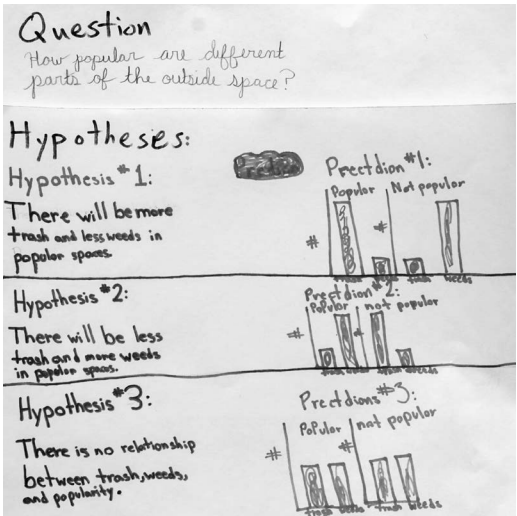 Question
How popular are different
parts of the outside space?
Hypotheses:
Hypothesis #1:
There will be more
trash and less weeds in
popular spaces.
Prectdion #1:
Popular Not popular
#
#
trash weeds trash weeds
Hypothesis #2:
There will be less
trash and more weeds
in popular spaces.
Prectdion #2:
Popular not popular
#
#
trash weeds trash weeds
Hypothesis #3:
There is no relationship
between trash, weeds,
and popularity.
Prectdions #3:
Popular not popular
#
#
trash weeds trash weeds